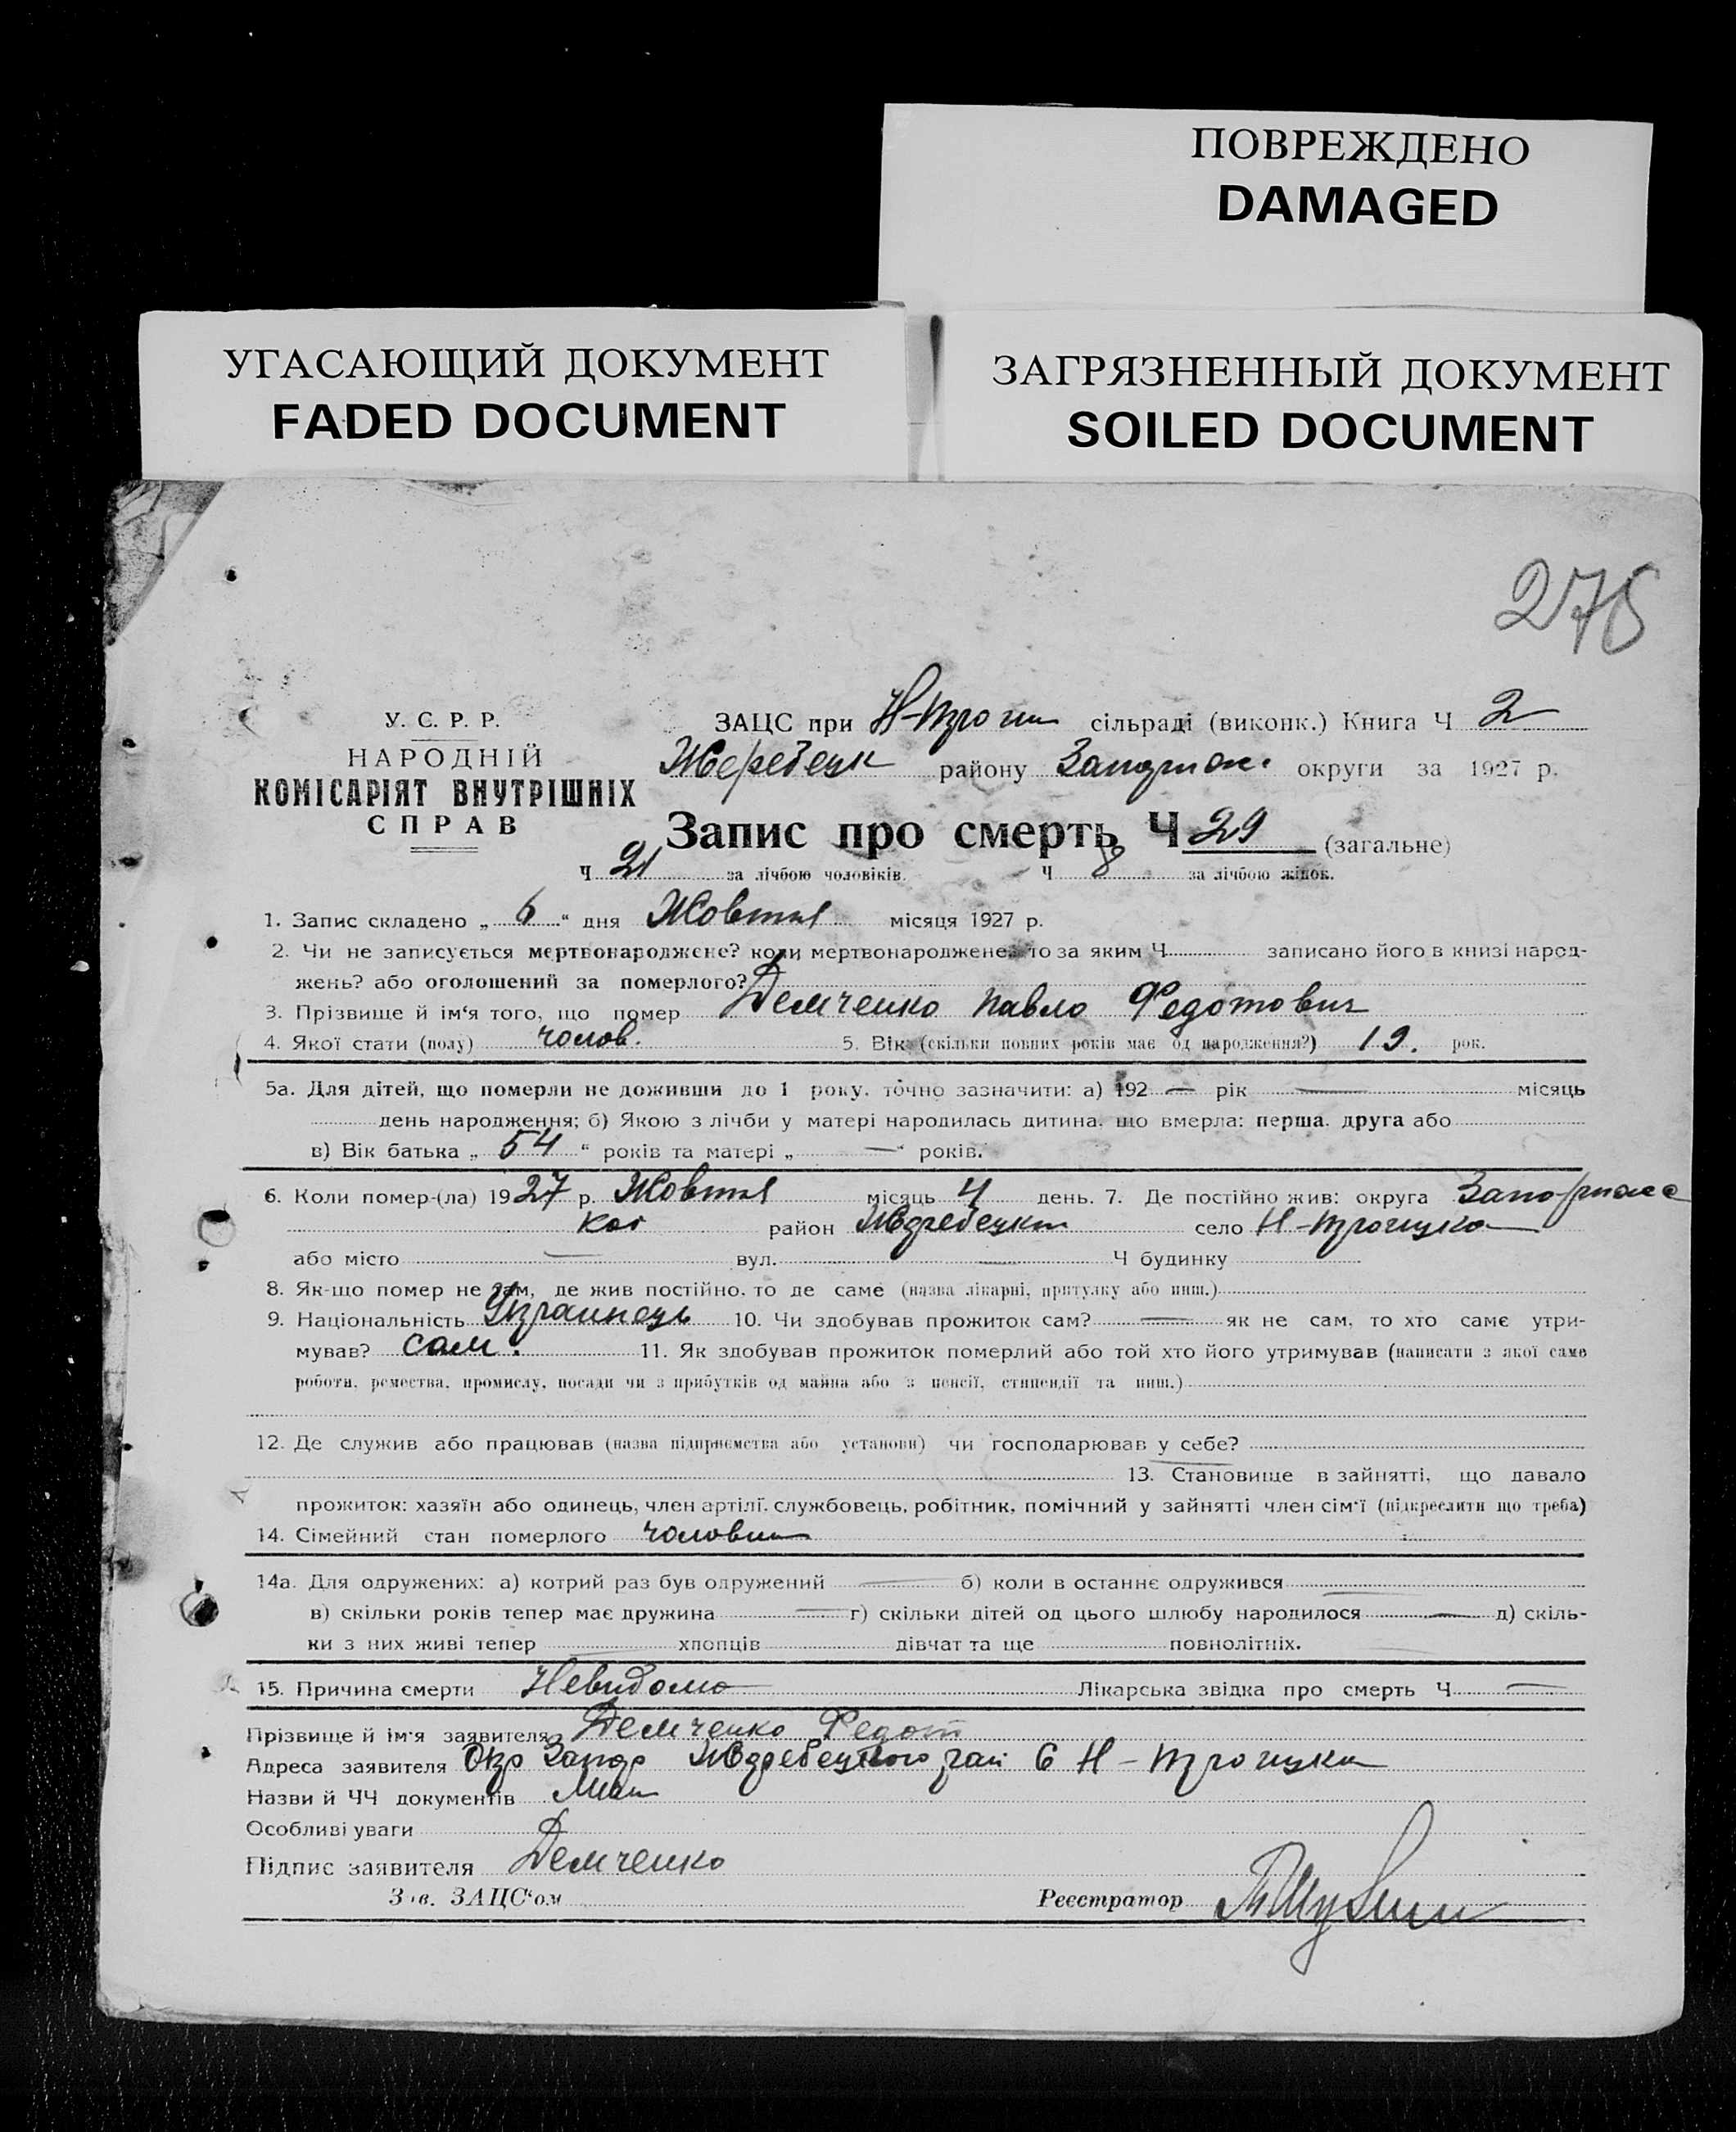 ПОВРЕЖДЕНО
DAMAGED
УГАСАЮЩИЙ ДОКУМЕНТ
FADED DOCUMENT
ЗАГРЯЗНЕННЫЙ ДОКУМЕНТ
SOILED DOCUMENT
У. С. Р. Р.
НАРОДНІЙ
КОМІСАРІЯТ ВНУТРІШНІХ
СПРАВ
ЗАЦС при сільраді (виконк.) Книга Ч 2
району округи за 1927 р.
Запис про смерть Ч 29 (загальне)
Ч 21 за лічбою чоловіків. Ч 8 за лічбою жінок.
1. Запис складено „ 6 “ дня Жовтня місяця 1927 р.
2. Чи не записується мертвонароджене? коли мертвонароджене, то за яким Ч записано його в книзі народ-
жень? або оголошений за померлого?
3. Прізвище й ім‘я того, що помер Демченко Павло Федотович
4. Якої стати (полу) чолов. 5. Вік (скільки повних років має од народження?) 19. рок.
5а. Для дітей, що померли не доживши до 1 року, точно зазначити: а) 192 — рік — місяць
день народження; б) Якою з лічби у матері народилась дитина, що вмерла: перша, друга або
в) Вік батька „ 54 “ років та матері „ — “ років.
6. Коли помер-(ла) 1927 р. Жовтня місяць 4 день. 7. Де постійно жив: округа
район село
або місто — вул. — Ч будинку
8. Як-що помер не там, де жив постійно, то де саме (назва лікарні, притулку або инш.)
9. Національність Украинець 10. Чи здобував прожиток сам? — як не сам, то хто саме утри-
мував? сам. 11. Як здобував прожиток померлий або той хто його утримував (написати з якої саме
роботи, ремества, промислу, посади чи з прибутків од майна або з пенсії, стипендії та инш.)
12. Де служив або працював (назва підприємства або установи) чи господарював у себе?
13. Становище в зайнятті, що давало
прожиток: хазяїн або одинець, член артілі, службовець, робітник, помічний у зайнятті член сім‘ї (підкреслити що треба)
14. Сімейний стан померлого
14а. Для одружених: а) котрий раз був одружений — б) коли в останнє одружився —
в) скільки років тепер має дружина — г) скільки дітей од цього шлюбу народилося — д) скіль-
ки з них живі тепер хлопців дівчат та ще повнолітніх.
15. Причина смерти Невидомо Лікарська звідка про смерть Ч —
Прізвище й ім‘я заявителя Демченко Федот
Адреса заявителя
Назви й ЧЧ документів
Особливі уваги
Підпис заявителя Демченко
Зав. ЗАЦС‘ом Реєстратор